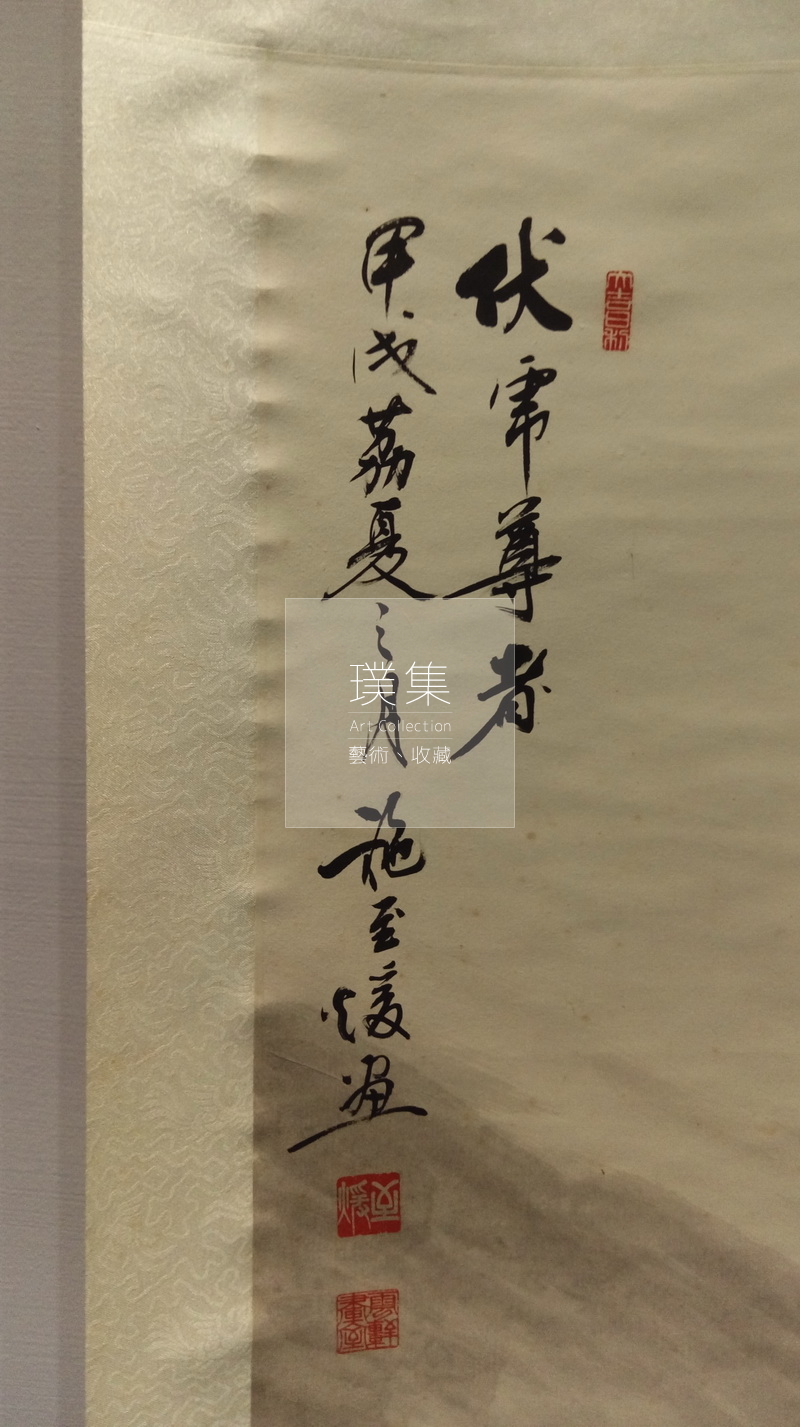 伏虎尊者
甲戌荔夏之月 施至煖畫
大吉利
至煖
璞集
Art Collection
藝術、收藏